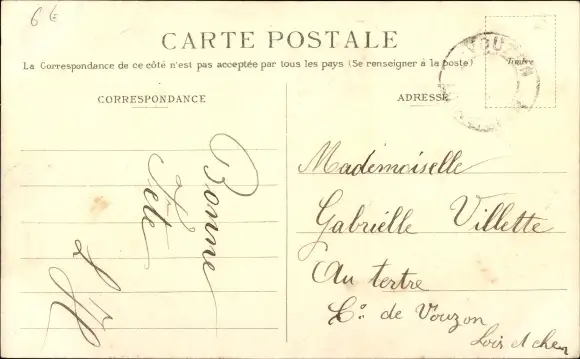 6€
CARTE POSTALE
La Correspondance de ce côté n'est pas acceptée par tous les pays (Se renseigner à la poste)
CORRESPONDANCE
ADRESSE
Timbre
VOUZON
Bonne
Fête
L H
Mademoiselle
Gabrielle Villette
Au tertre
Cne de Vouzon
Loir et cher